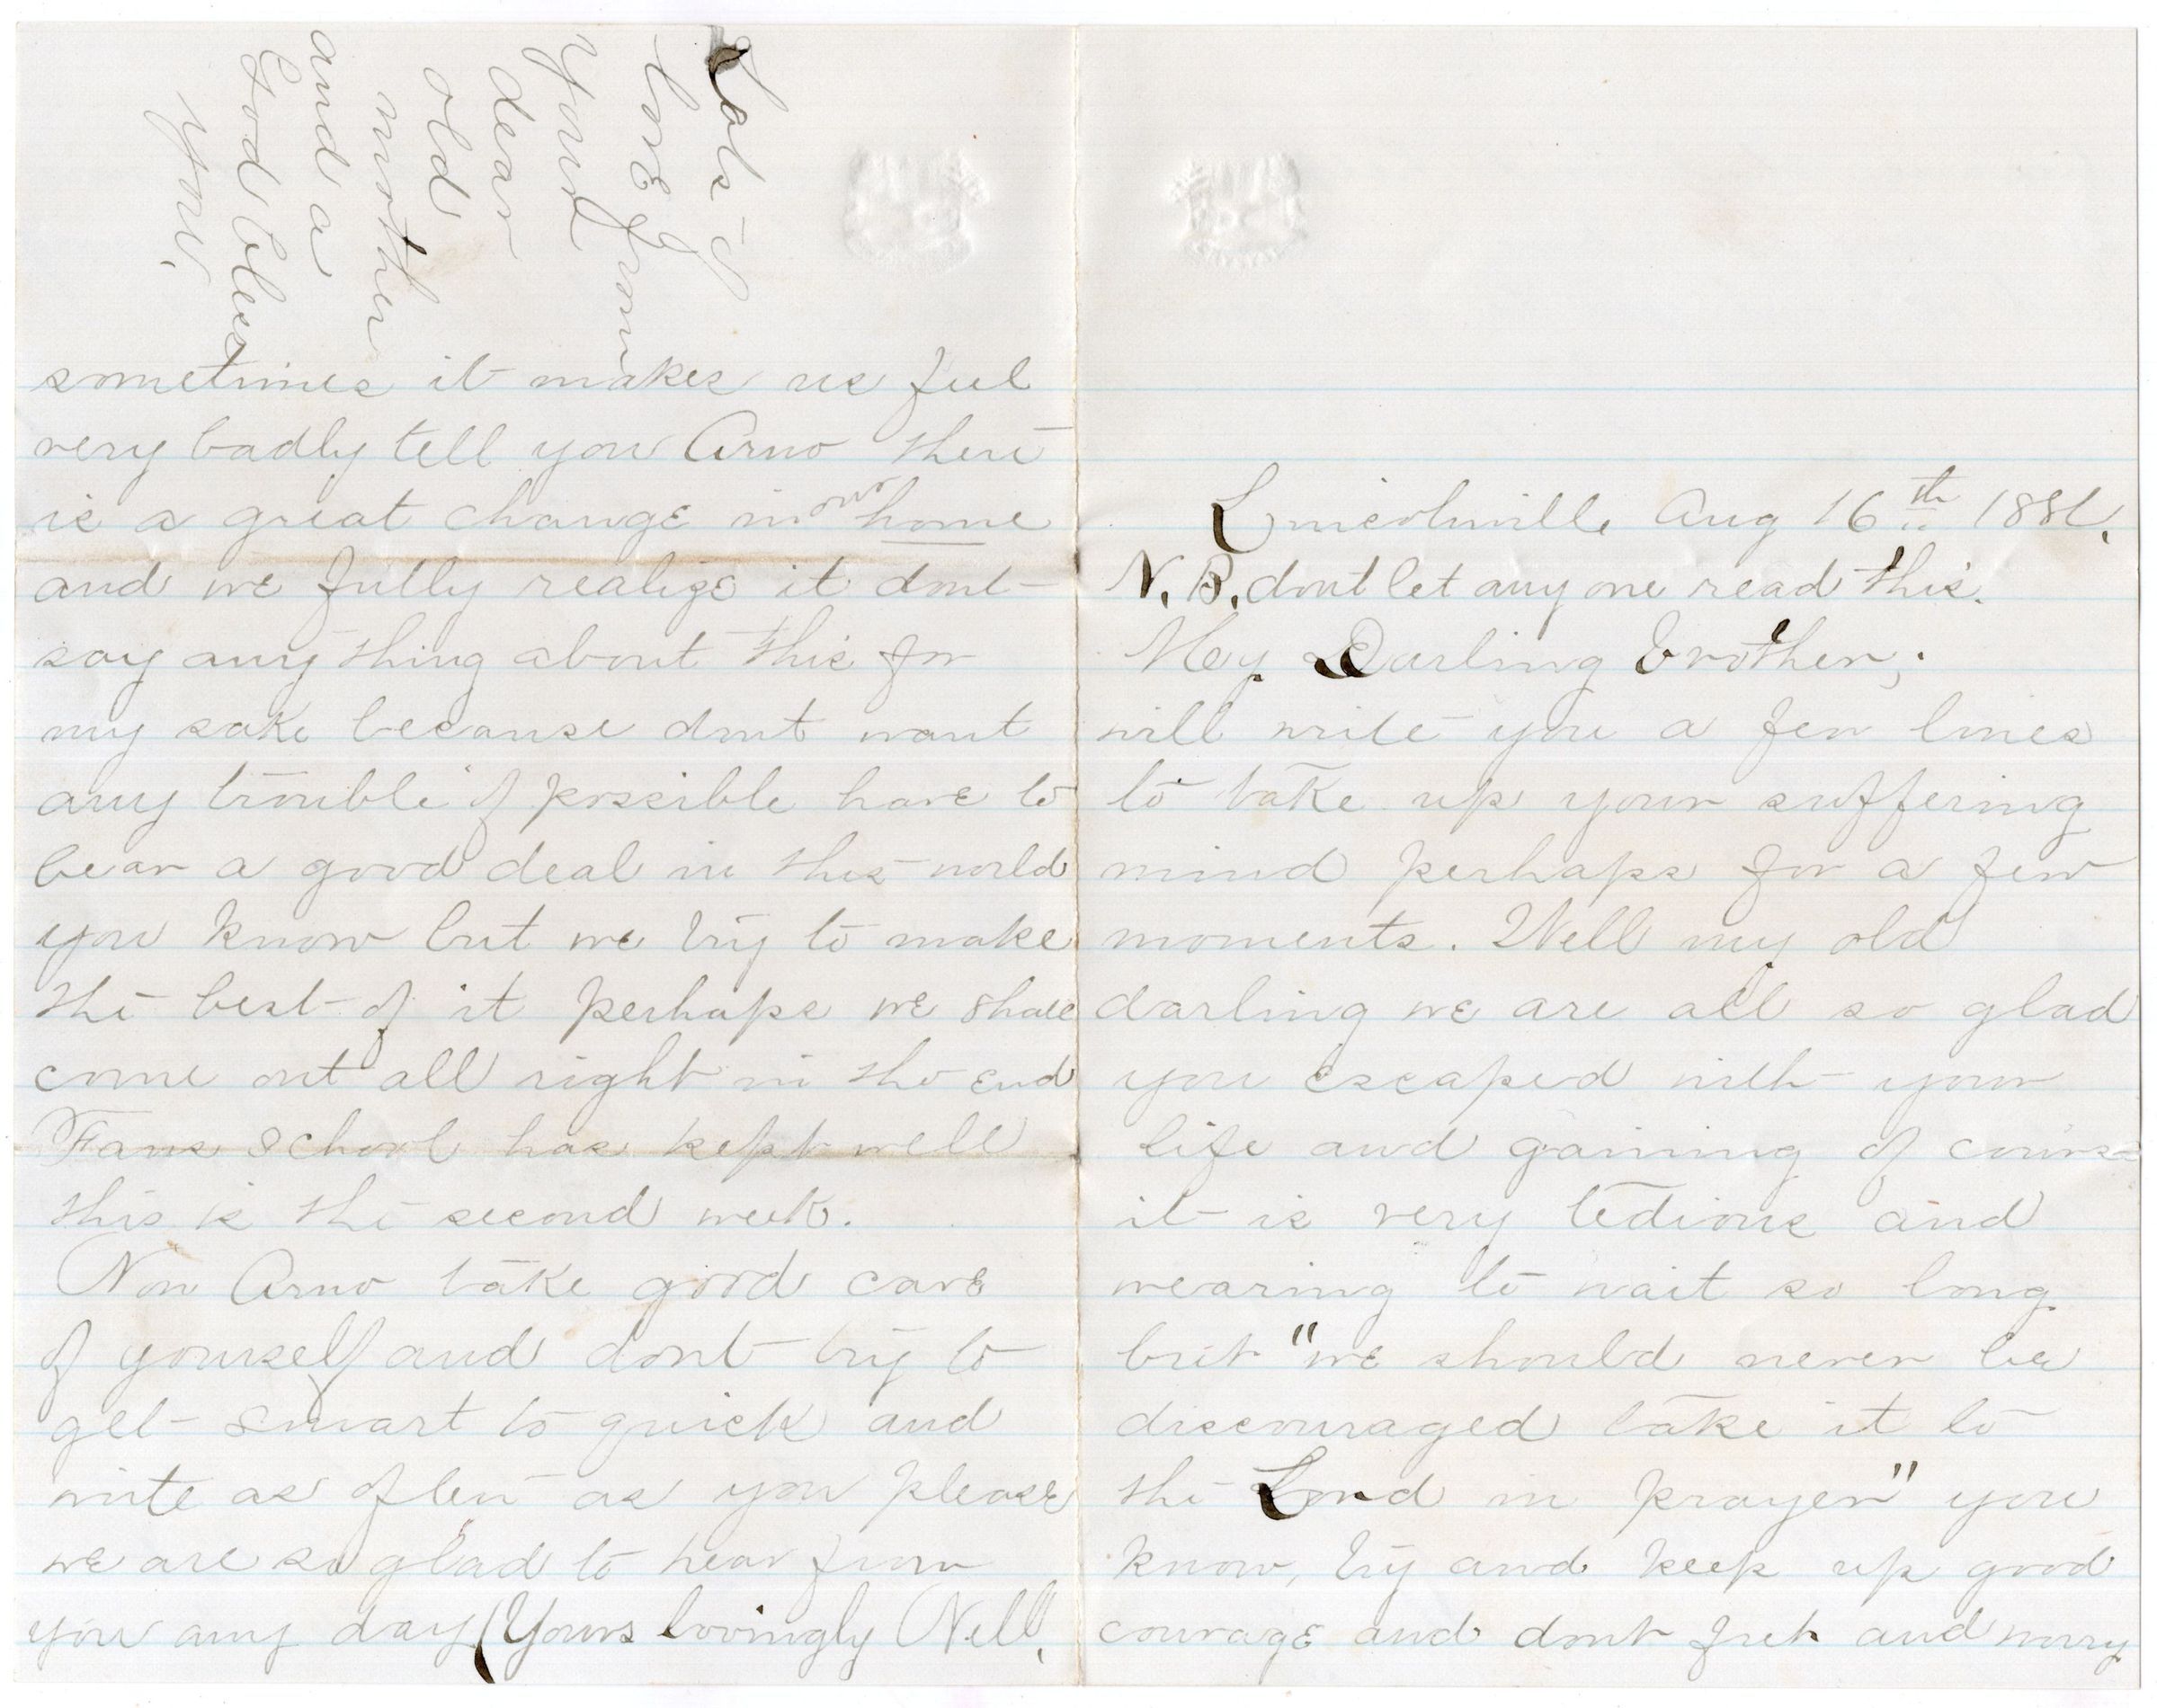 Lincolnville Aug 16th 1881.
N. B. dont let any one read this.
My Darling Brother;
will write you a few lines
to take up your suffering
mind perhaps for a few
moments. Well my old
darling we are all so glad
you escaped with your
life and gaining of course
it is very tedious and
wearing to wait so long
but "we should never be
discouraged take it to
the Lord in prayer" you
know, try and keep up good
courage and dont fret and worry
sometimes it makes us feel
very badly tell you Arno there
is a great change in our home
and we fully realize it dont
say any thing about this for
my sake because dont want
any trouble if possible have to
bear a good deal in this world
you know but we try to make
the best of it perhaps we shall
come out all right in the end
Fans School has kept well
this is the second week.
Now Arno take good care
of yourself and dont try to
get smart to quick and
write as often as you please
we are so glad to hear from
you any day (Yours lovingly Nell.
Lots of
love from
your
dear
old
mother
and a
God bless
you.